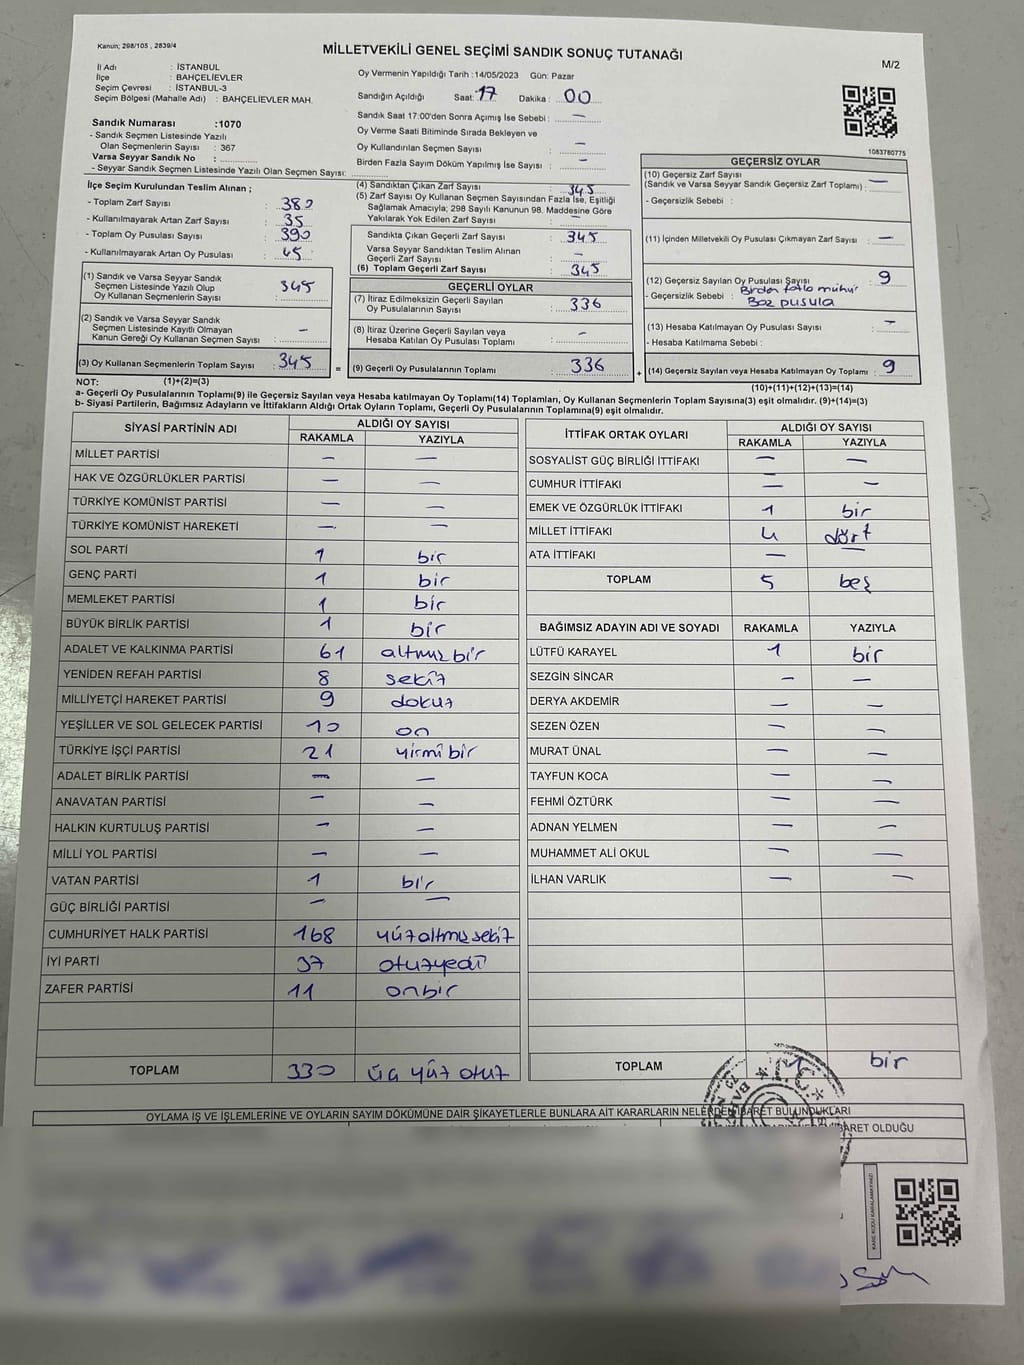 Kanun; 298/105 , 2839/4
MİLLETVEKİLİ GENEL SEÇİMİ SANDIK SONUÇ TUTANAĞI
M/2
İl Adı : İSTANBUL
İlçe : BAHÇELİEVLER
Seçim Çevresi : İSTANBUL-3
Seçim Bölgesi (Mahalle Adı) : BAHÇELİEVLER MAH.
Sandık Numarası :1070
- Sandık Seçmen Listesinde Yazılı
Olan Seçmenlerin Sayısı : 367
Varsa Seyyar Sandık No :
- Seyyar Sandık Seçmen Listesinde Yazılı Olan Seçmen Sayısı:
Oy Vermenin Yapıldığı Tarih :14/05/2023 Gün: Pazar
Sandığın Açıldığı Saat: 17 Dakika : 00
Sandık Saat 17:00'den Sonra Açımış İse Sebebi : —
Oy Verme Saati Bitiminde Sırada Bekleyen ve
Oy Kullandırılan Seçmen Sayısı : —
Birden Fazla Sayım Döküm Yapılmış İse Sayısı : —
1083780775
İlçe Seçim Kurulundan Teslim Alınan ;
- Toplam Zarf Sayısı : 380
- Kullanılmayarak Artan Zarf Sayısı : 35
- Toplam Oy Pusulası Sayısı : 390
- Kullanılmayarak Artan Oy Pusulası : 45
(1) Sandık ve Varsa Seyyar Sandık
Seçmen Listesinde Yazılı Olup
Oy Kullanan Seçmenlerin Sayısı : 345
(2) Sandık ve Varsa Seyyar Sandık
Seçmen Listesinde Kayıtlı Olmayan
Kanun Gereği Oy Kullanan Seçmen Sayısı : —
(3) Oy Kullanan Seçmenlerin Toplam Sayısı : 345
(4) Sandıktan Çıkan Zarf Sayısı : 345
(5) Zarf Sayısı Oy Kullanan Seçmen Sayısından Fazla İse, Eşitliği
Sağlamak Amacıyla; 298 Sayılı Kanunun 98. Maddesine Göre
Yakılarak Yok Edilen Zarf Sayısı : —
Sandıkta Çıkan Geçerli Zarf Sayısı : 345
Varsa Seyyar Sandıktan Teslim Alınan
Geçerli Zarf Sayısı : —
(6) Toplam Geçerli Zarf Sayısı : 345
GEÇERLİ OYLAR
(7) İtiraz Edilmeksizin Geçerli Sayılan
Oy Pusulalarının Sayısı : 336
(8) İtiraz Üzerine Geçerli Sayılan veya
Hesaba Katılan Oy Pusulası Toplamı : —
= (9) Geçerli Oy Pusulalarının Toplamı : 336
GEÇERSİZ OYLAR
(10) Geçersiz Zarf Sayısı
(Sandık ve Varsa Seyyar Sandık Geçersiz Zarf Toplamı) : —
- Geçersizlik Sebebi :
(11) İçinden Milletvekili Oy Pusulası Çıkmayan Zarf Sayısı : —
(12) Geçersiz Sayılan Oy Pusulası Sayısı : 9
- Geçersizlik Sebebi : Birden fazla mühür
Boş pusula
(13) Hesaba Katılmayan Oy Pusulası Sayısı : —
- Hesaba Katılmama Sebebi :
+ (14) Geçersiz Sayılan veya Hesaba Katılmayan Oy Toplamı : 9
NOT: (1)+(2)=(3)
(10)+(11)+(12)+(13)=(14)
a- Geçerli Oy Pusulalarının Toplamı(9) ile Geçersiz Sayılan veya Hesaba katılmayan Oy Toplamı(14) Toplamları, Oy Kullanan Seçmenlerin Toplam Sayısına(3) eşit olmalıdır. (9)+(14)=(3)
b- Siyasi Partilerin, Bağımsız Adayların ve İttifakların Aldığı Ortak Oyların Toplamı, Geçerli Oy Pusulalarının Toplamına(9) eşit olmalıdır.
SİYASİ PARTİNİN ADI ALDIĞI OY SAYISI
RAKAMLA YAZIYLA
MİLLET PARTİSİ — —
HAK VE ÖZGÜRLÜKLER PARTİSİ — —
TÜRKİYE KOMÜNİST PARTİSİ — —
TÜRKİYE KOMÜNİST HAREKETİ — —
SOL PARTİ 1 bir
GENÇ PARTİ 1 bir
MEMLEKET PARTİSİ 1 bir
BÜYÜK BİRLİK PARTİSİ 1 bir
ADALET VE KALKINMA PARTİSİ 61 altmışbir
YENİDEN REFAH PARTİSİ 8 sekiz
MİLLİYETÇİ HAREKET PARTİSİ 9 dokuz
YEŞİLLER VE SOL GELECEK PARTİSİ 10 on
TÜRKİYE İŞÇİ PARTİSİ 21 yirmibir
ADALET BİRLİK PARTİSİ — —
ANAVATAN PARTİSİ — —
HALKIN KURTULUŞ PARTİSİ — —
MİLLİ YOL PARTİSİ — —
VATAN PARTİSİ 1 bir
GÜÇ BİRLİĞİ PARTİSİ — —
CUMHURİYET HALK PARTİSİ 168 yüzaltmışsekiz
İYİ PARTİ 37 otuzyedi
ZAFER PARTİSİ 11 onbir
TOPLAM 330 üç yüz otuz
İTTİFAK ORTAK OYLARI ALDIĞI OY SAYISI
RAKAMLA YAZIYLA
SOSYALİST GÜÇ BİRLİĞİ İTTİFAKI — —
CUMHUR İTTİFAKI — —
EMEK VE ÖZGÜRLÜK İTTİFAKI 1 bir
MİLLET İTTİFAKI 4 dört
ATA İTTİFAKI — —
TOPLAM 5 beş
BAĞIMSIZ ADAYIN ADI VE SOYADI RAKAMLA YAZIYLA
LÜTFÜ KARAYEL 1 bir
SEZGİN SİNCAR — —
DERYA AKDEMİR — —
SEZEN ÖZEN — —
MURAT ÜNAL — —
TAYFUN KOCA — —
FEHMİ ÖZTÜRK — —
ADNAN YELMEN — —
MUHAMMET ALİ OKUL — —
İLHAN VARLIK — —
TOPLAM 1 bir
OYLAMA İŞ VE İŞLEMLERİNE VE OYLARIN SAYIM DÖKÜMÜNE DAİR ŞİKAYETLERLE BUNLARA AİT KARARLARIN NELERDEN İBARET BULUNDUKLARI
BARET OLDUĞU
KARE KODU KARALAMAYINIZ!